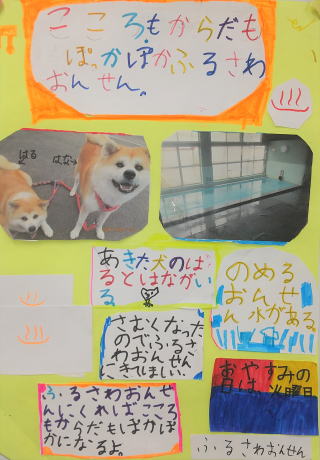 こころもからだも
ぽっかぽかふるさわ
おんせん。
はる
はな
あきた犬のは
るとはながい
る
のめる
おんせ
ん水がある
さむくなった
のでふるさ
わおんせん
にきてほしい。
お休みの
日は、水曜日
ふるさわおんせ
んにくればこころ
もからだもぽかぽ
かになるよ。
ふるさわおんせん